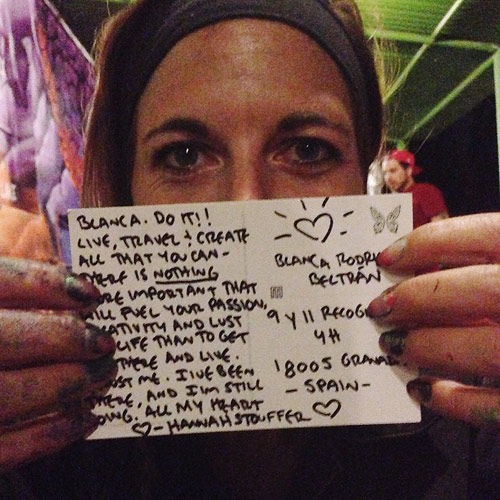 BLANCA. DO IT!!
LIVE, TRAVEL + CREATE
ALL THAT YOU CAN-
THERE IS NOTHING
MORE IMPORTANT THAT
WILL FUEL YOUR PASSION,
CREATIVITY AND LUST
LIFE THAN TO GET
THERE AND LIVE.
TRUST ME. I'VE BEEN
THERE, AND I'M STILL
GOING. ALL MY HEART
- HANNAH STOUFFER
BLANCA RODRI
BELTRÁN
9 Y 11 RECOGI
4H
18005 GRANAD
- SPAIN -